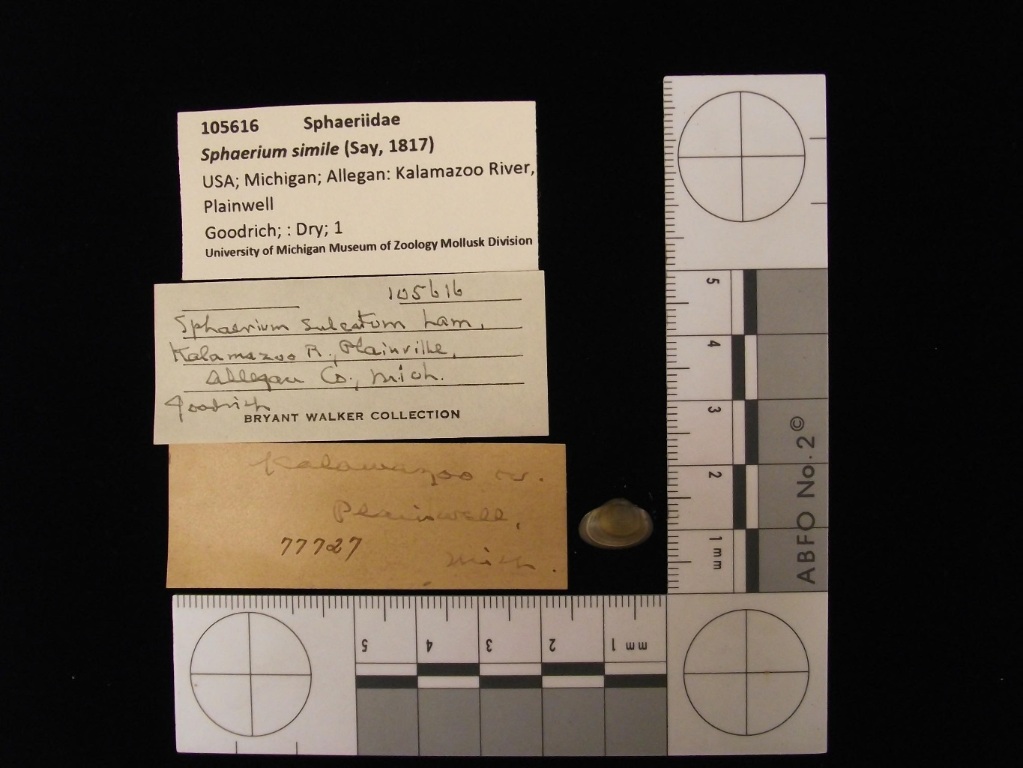 105616 Sphaeriidae
Sphaerium simile (Say, 1817)
USA; Michigan; Allegan: Kalamazoo River,
Plainwell
Goodrich; : Dry; 1
University of Michigan Museum of Zoology Mollusk Division
105616
Sphaerium sulcatum Lam.
Kalamazoo R., Plainville,
Allegan Co., Mich.
Goodrich
BRYANT WALKER COLLECTION
Kalamazoo r.
Plainwell,
77727
Mich.
5
4
3
2
1 mm
ABFO No. 2 ©
5
4
3
2
1 mm